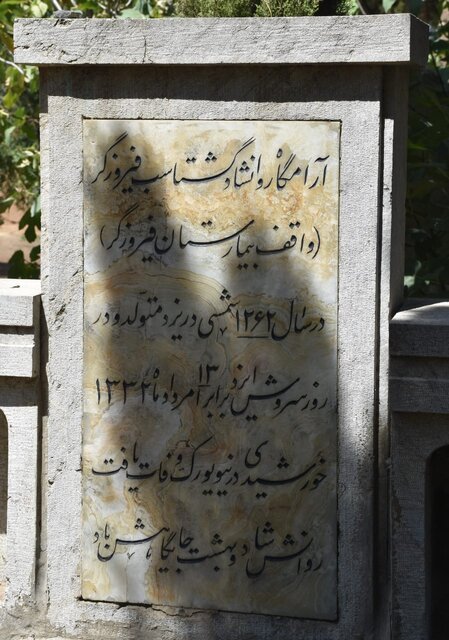 آرامگاه روانشاد گشتاسب فیروزگر
(واقف بیمارستان فیروزگر)
در سال ۱۲۶۲ شمسی در یزد متولّد و در
روز سروش ایزد برابر ۱۳ امرداد ماه ۱۳۳۲
خورشیدی در نیویورک وفات یافت
روانش شاد و بهشت جایگاهش باد